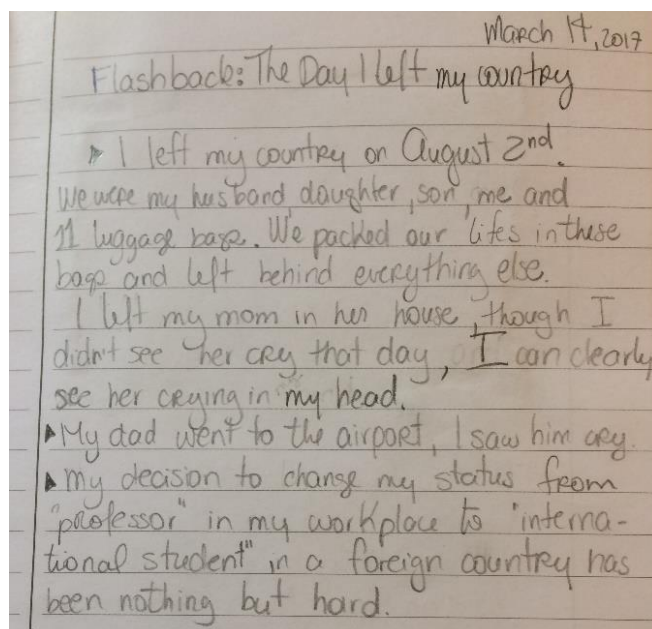 March 14, 2017
Flashback: The Day I left my country
▸ I left my country on August 2nd.
We were my husband, daughter, son, me and
11 luggage bags. We packed our lifes in these
bags and left behind everything else.
I left my mom in her house, though I
didn't see her cry that day, I can clearly
see her crying in my head.
▸ My dad went to the airport, I saw him cry.
▸ my decision to change my status from
"professor" in my workplace to "interna-
tional student" in a foreign country has
been nothing but hard.